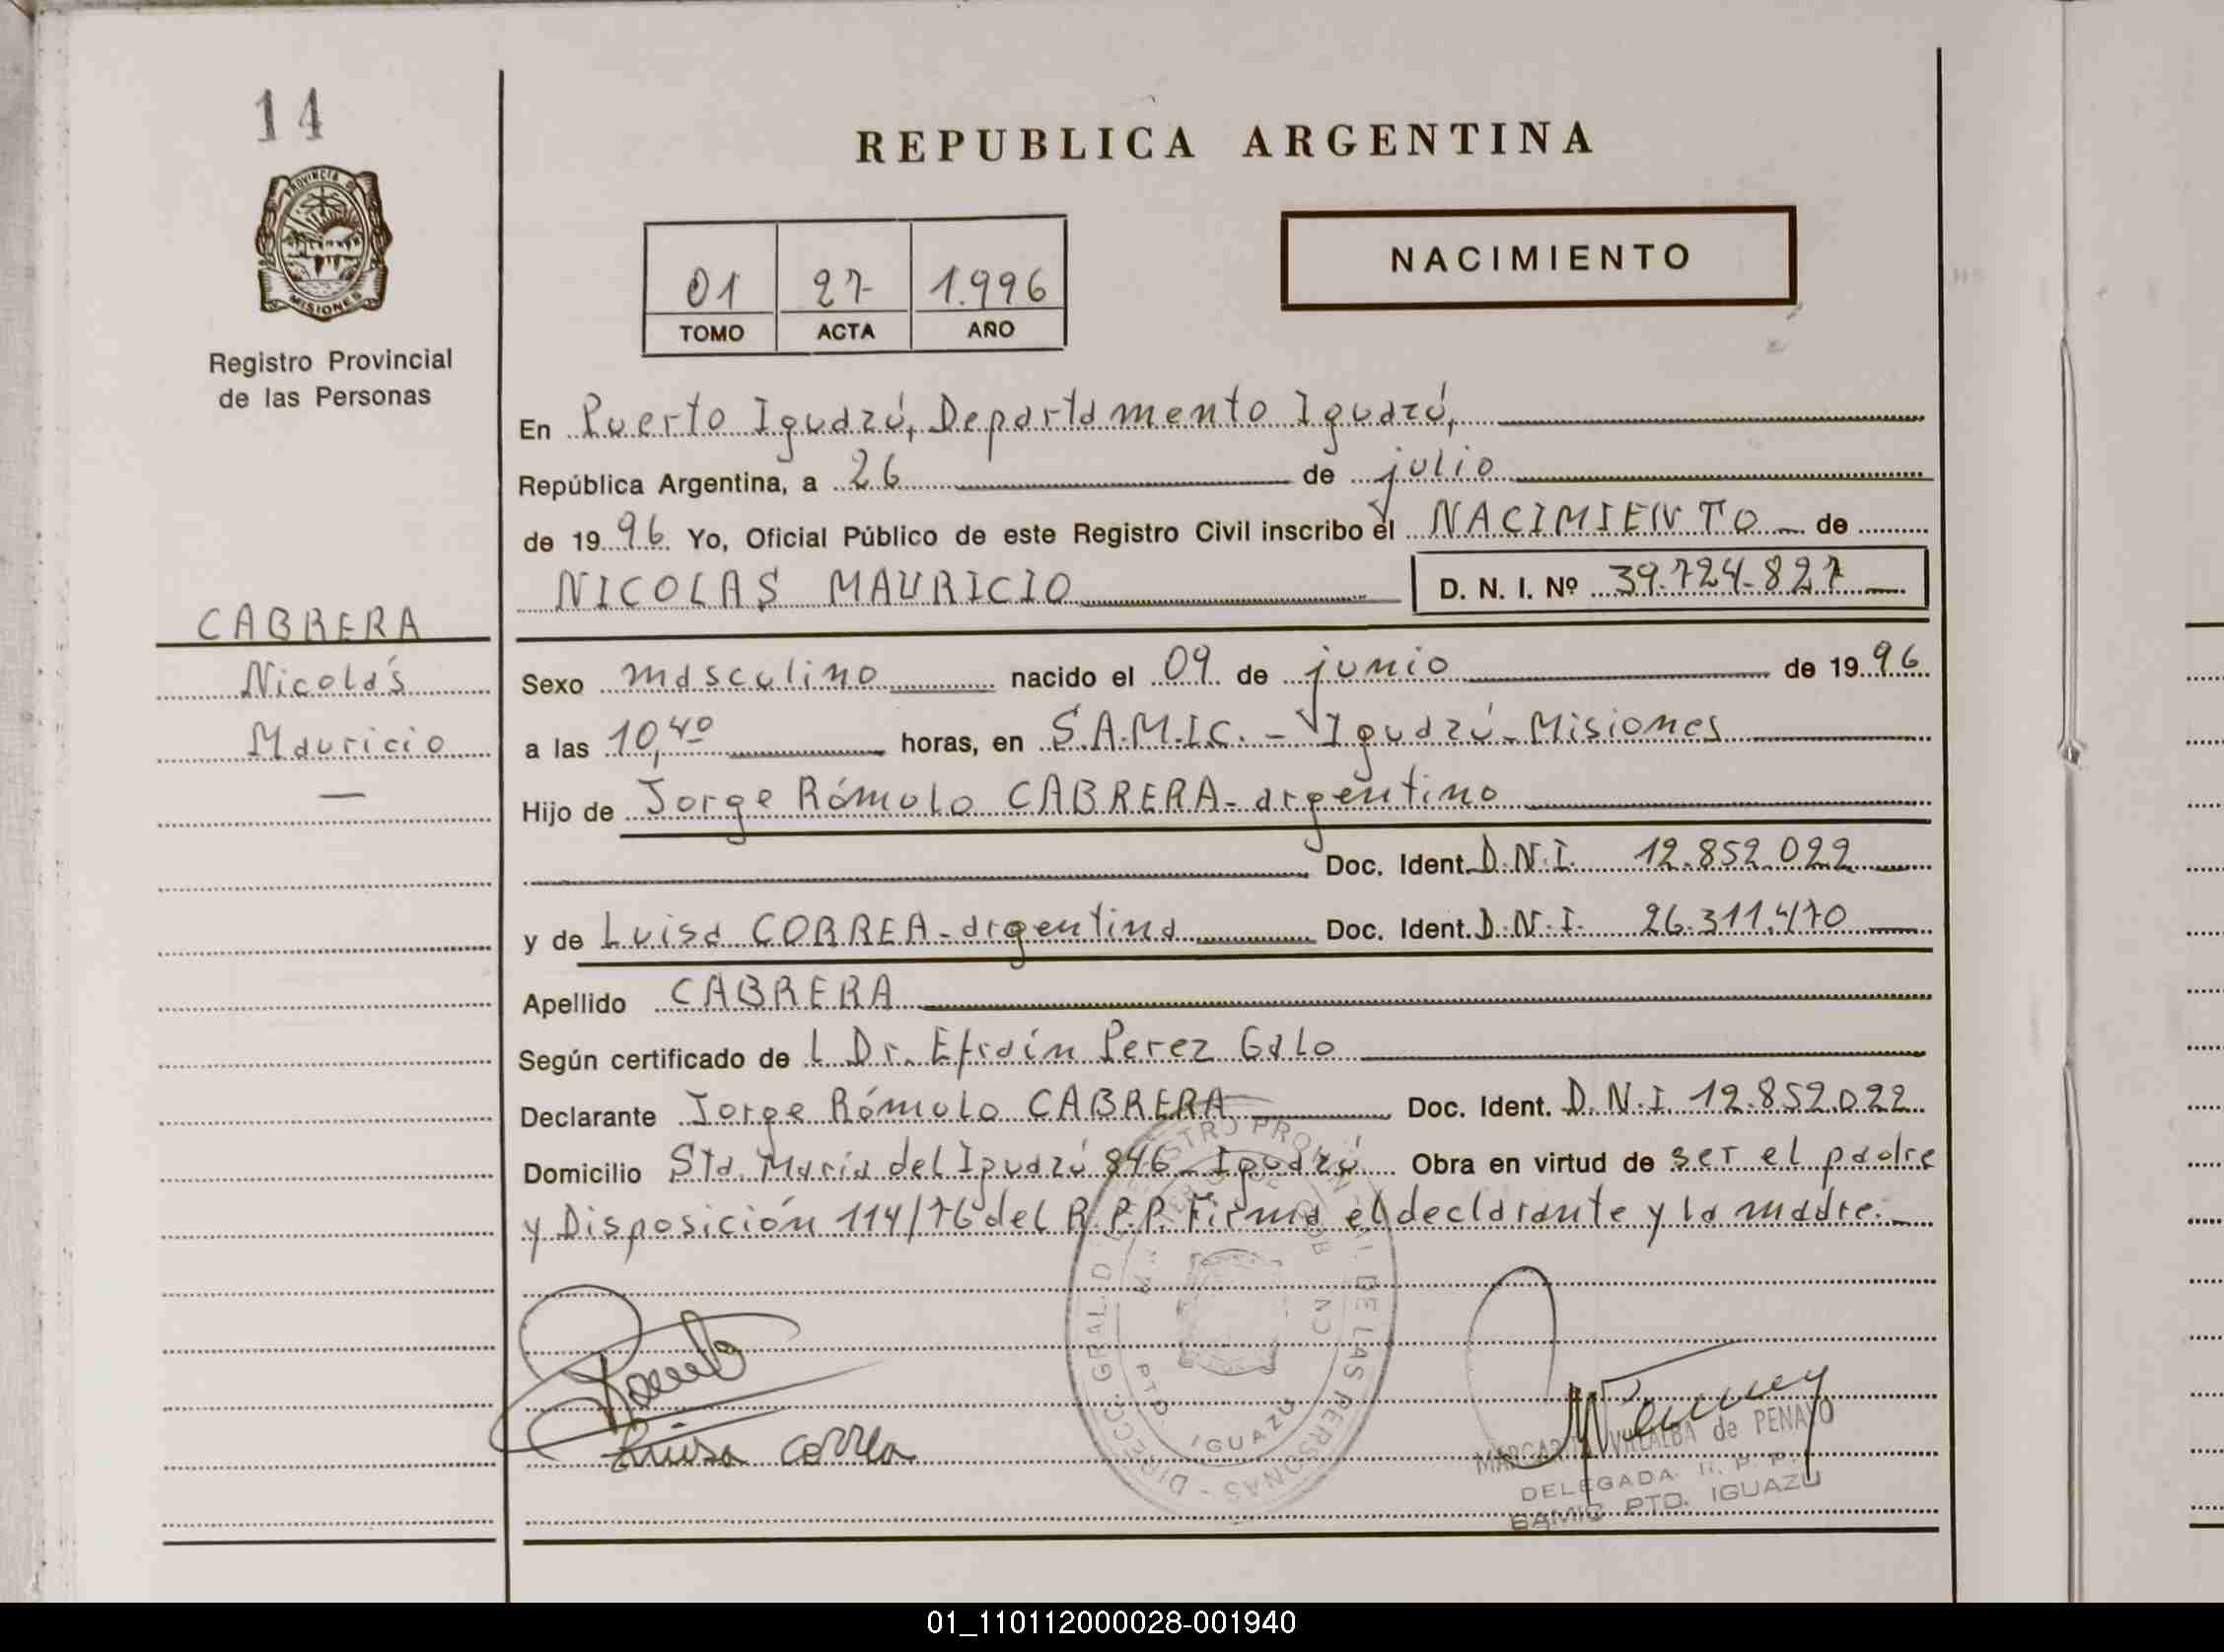 14
PROVINCIA DE
MISIONES
Registro Provincial
de las Personas
REPUBLICA ARGENTINA
NACIMIENTO
01 27 1.996
TOMO ACTA AÑO
En Puerto Iguazú, Departamento Iguazú,
República Argentina, a 26 de julio
de 1996 Yo, Oficial Público de este Registro Civil inscribo el NACIMIENTO de
NICOLAS MAURICIO D. N. I. Nº 39.724.827
CABRERA
Nicolás
Mauricio
Sexo masculino nacido el 09 de junio de 1996
a las 10,40 horas, en S.A.M.I.C. - Iguazú - Misiones
Hijo de Jorge Rómulo CABRERA - argentino
Doc. Ident. D.N.I. 12.852.022
y de Luisa CORREA - argentina Doc. Ident. D.N.I. 26.311.470
Apellido CABRERA
Según certificado de l Dr. Efraín Perez Galo
Declarante Jorge Rómulo CABRERA Doc. Ident. D.N.I. 12.852.022
Domicilio Sta. María del Iguazú 846 - Iguazú Obra en virtud de ser el padre
y Disposición 114/76 del R.P.P. Firma el declarante y la madre.-
DIRECC. GRAL. DEL REGISTRO PROVINCIAL DE LAS PERSONAS
PTO IGUAZU
Luisa Correa
MARGARITA VILLALBA de PENAYO
DELEGADA R. P. P.
SAMIC PTO. IGUAZU
01_110112000028-001940